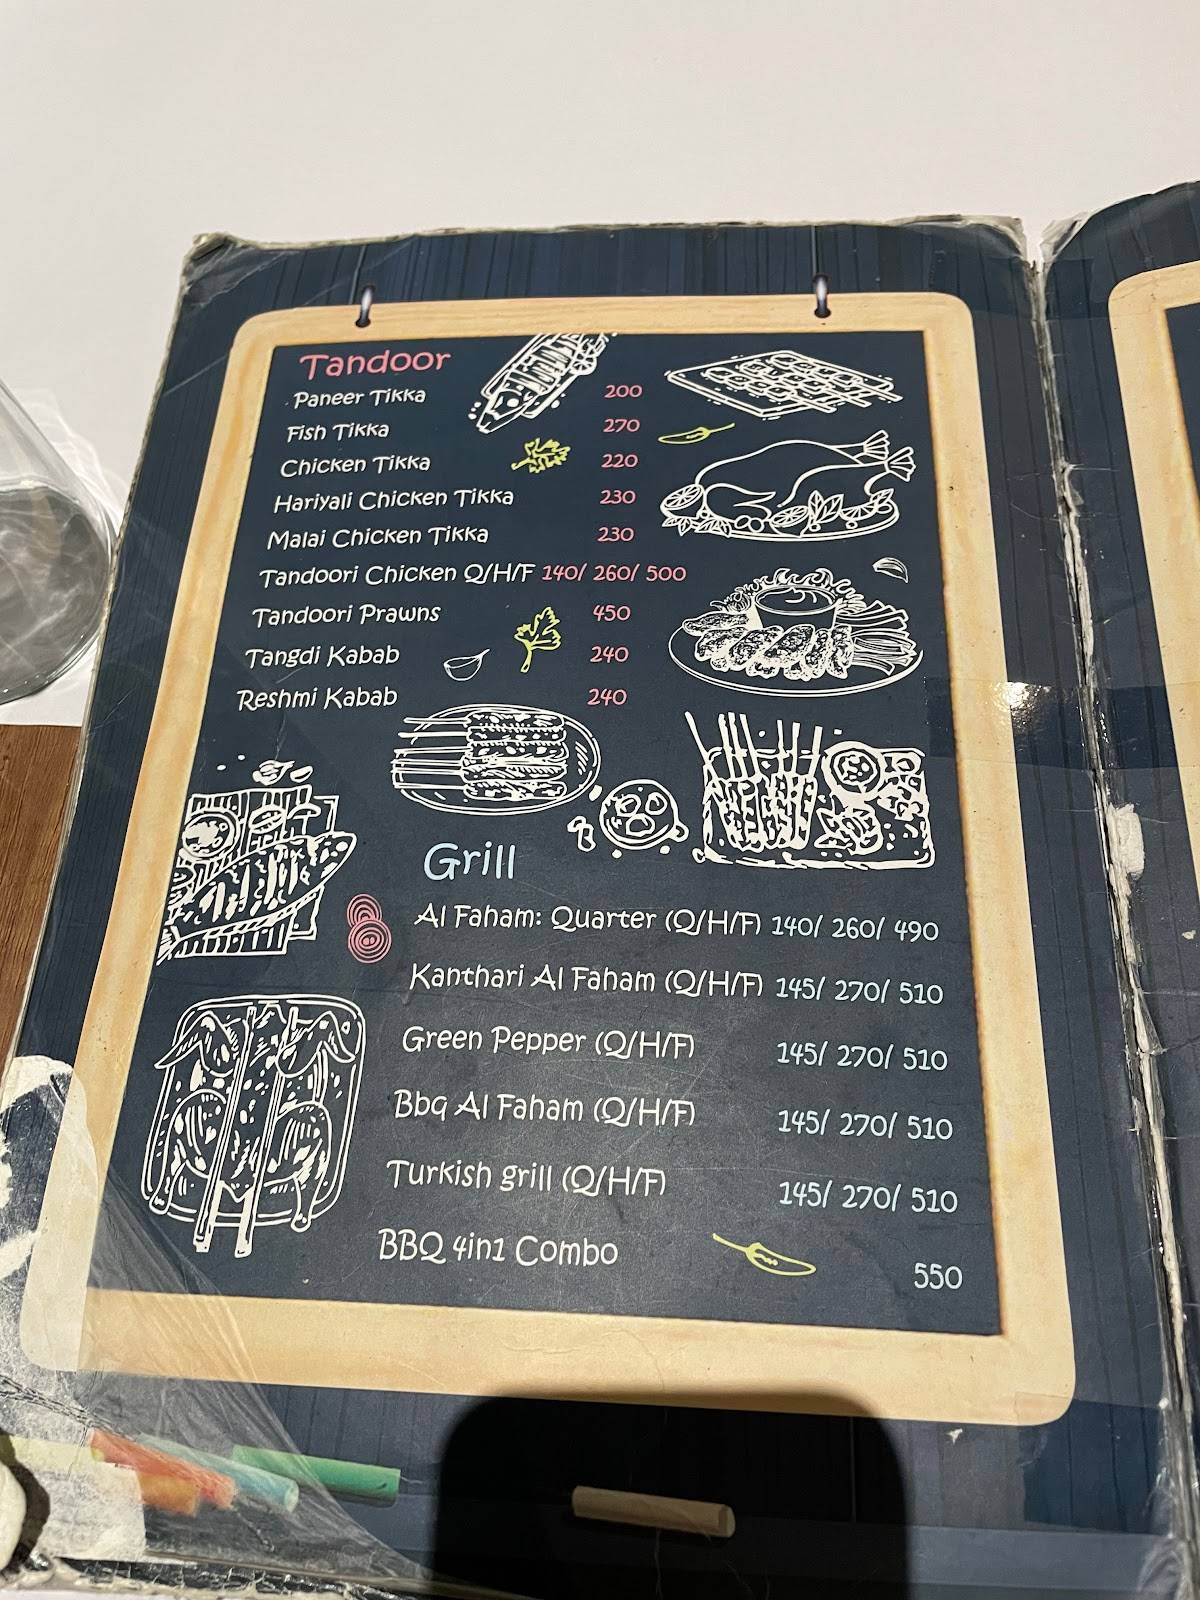 Tandoor
Paneer Tikka 200
Fish Tikka 270
Chicken Tikka 220
Hariyali Chicken Tikka 230
Malai Chicken Tikka 230
Tandoori Chicken Q/H/F 140/ 260/ 500
Tandoori Prawns 450
Tangdi Kabab 240
Reshmi Kabab 240
Grill
Al Faham: Quarter (Q/H/F) 140/ 260/ 490
Kanthari Al Faham (Q/H/F) 145/ 270/ 510
Green Pepper (Q/H/F) 145/ 270/ 510
Bbq Al Faham (Q/H/F) 145/ 270/ 510
Turkish grill (Q/H/F) 145/ 270/ 510
BBQ 4in1 Combo 550